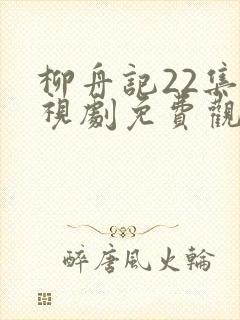 柳舟記22集
視劇免費觀
醉唐風火輪